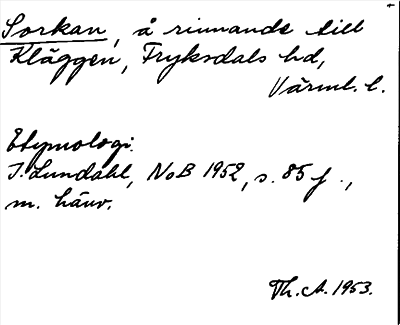 Sorkan, å rinnande till
Kläggen, Fryksdals hd,
Värml. l.
Etymologi.
I. Lundahl, NoB 1952, s. 85 f.,
m. hänv.
Th. A. 1953.